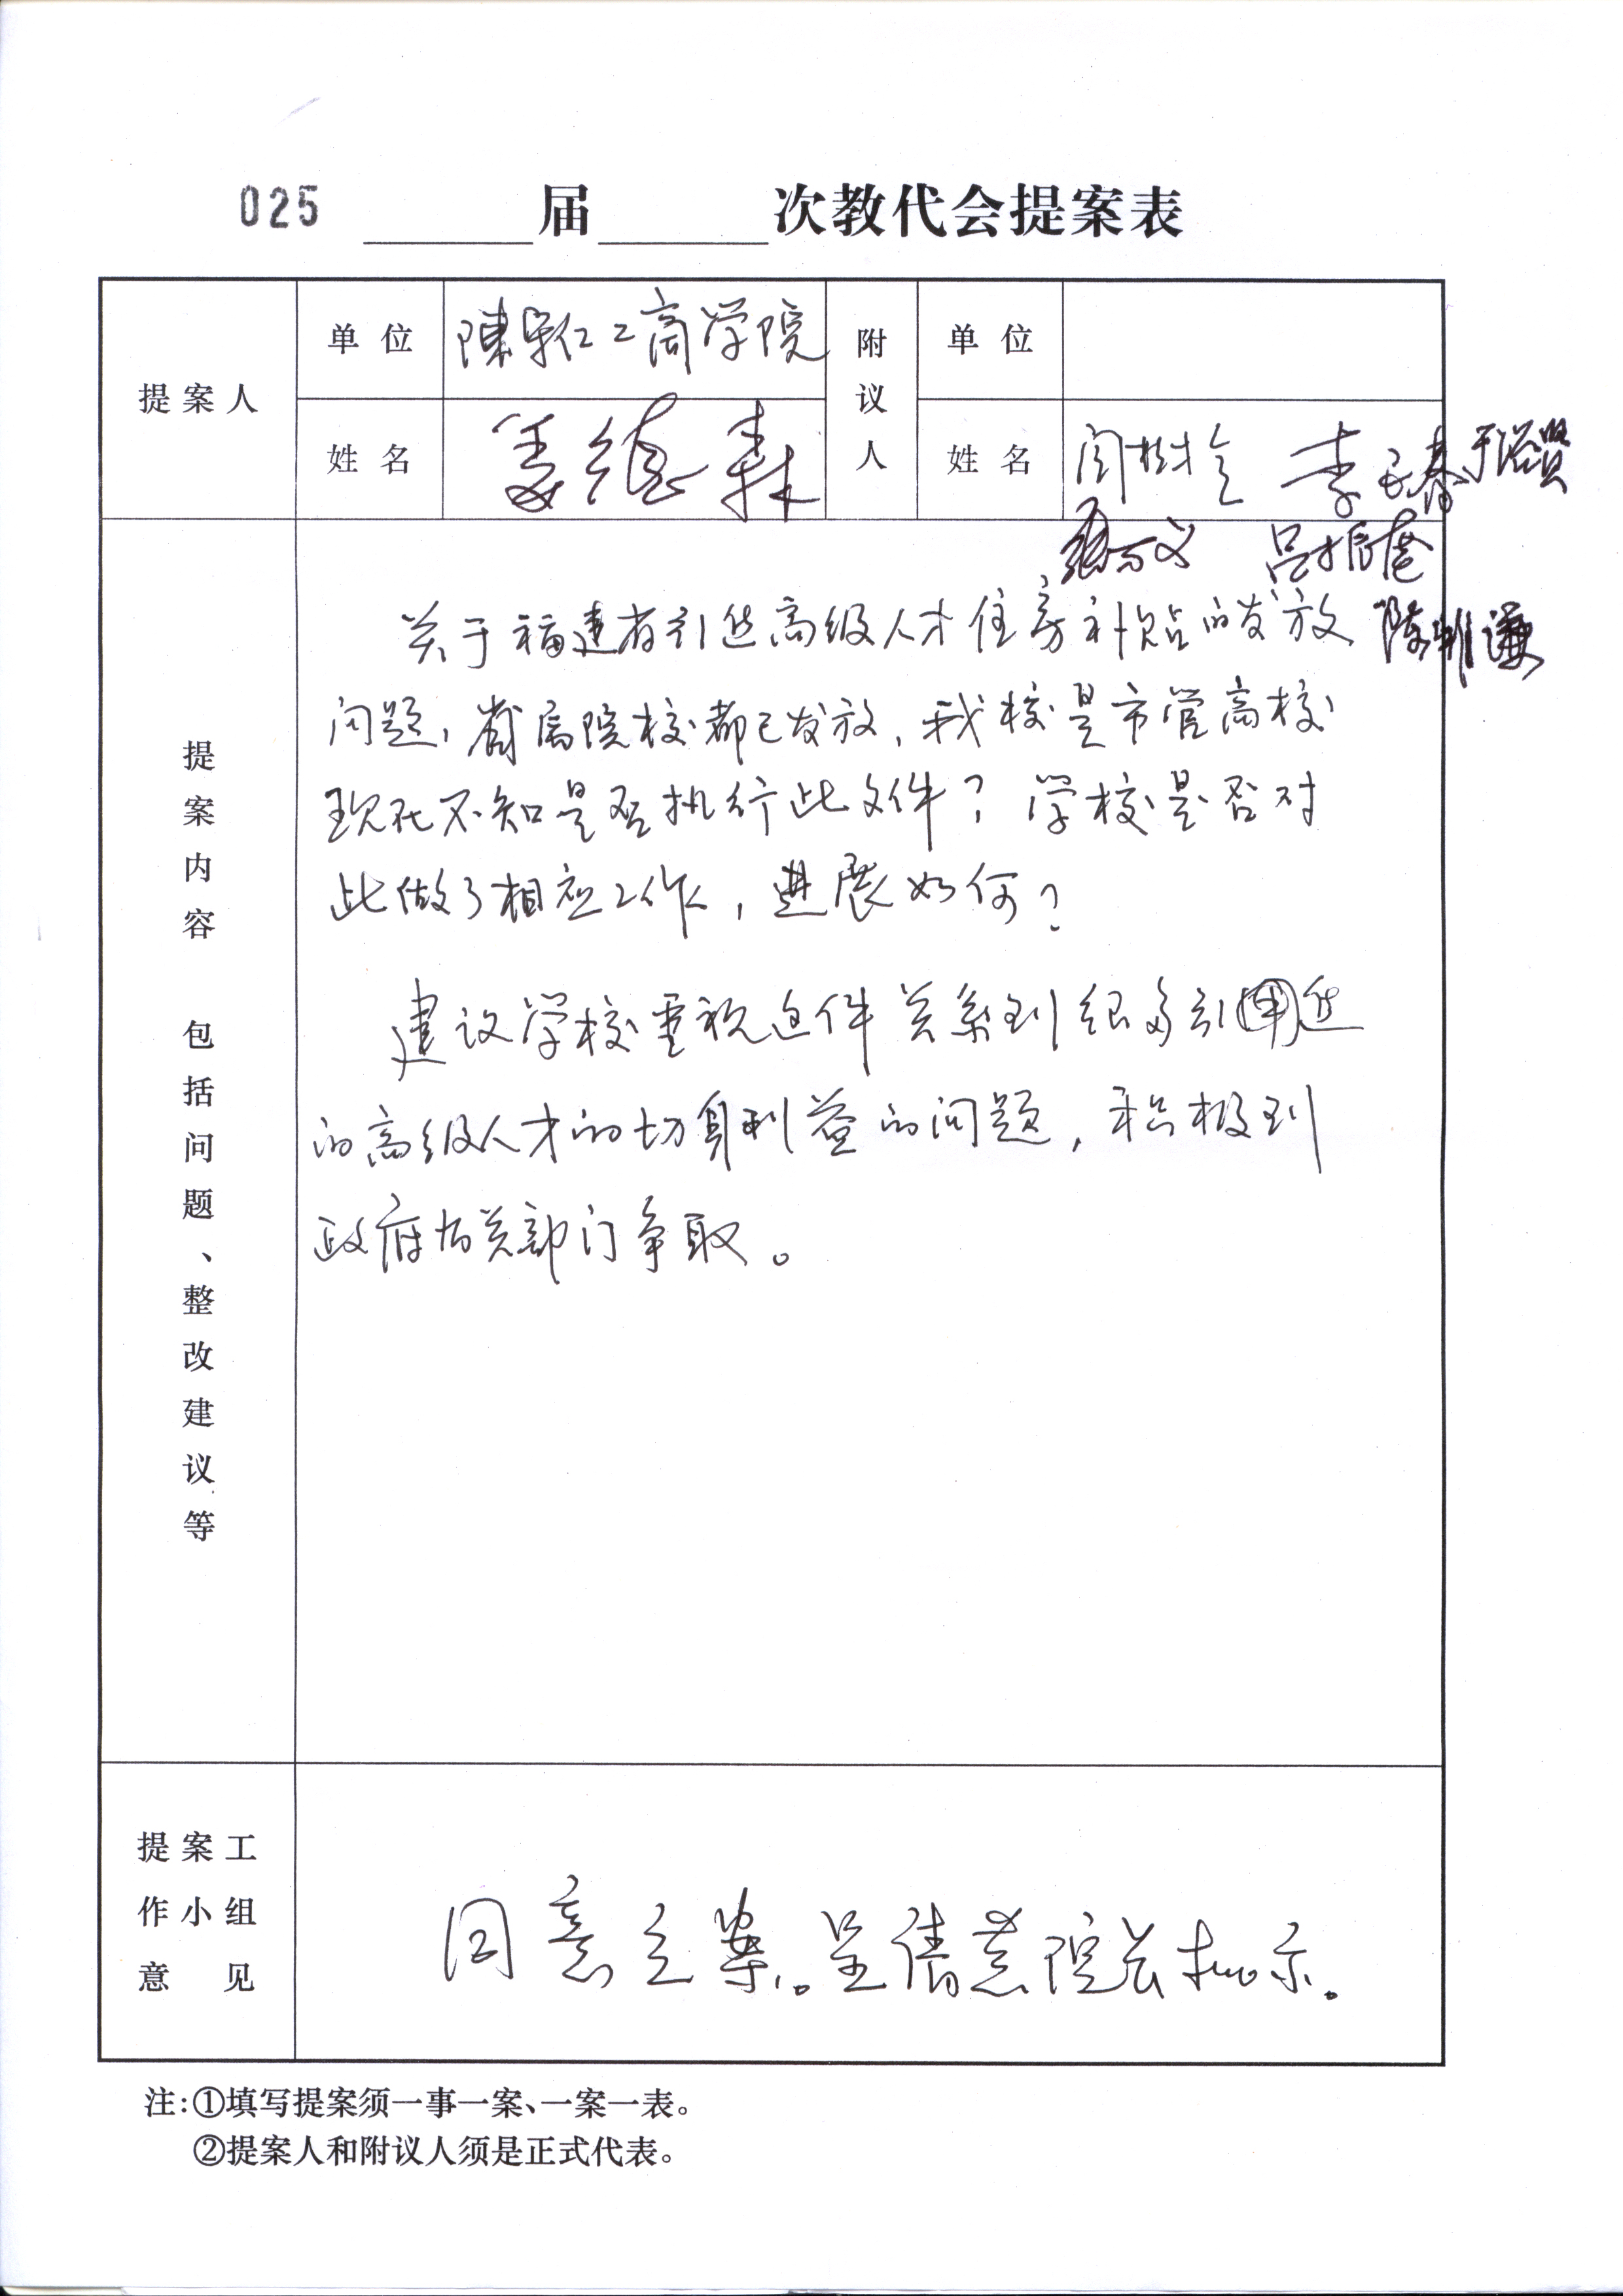 025 届 次教代会提案表
提案人
单位
陳守仁工商学院
附议人
单位
姓名
姜德森
姓名
闫树
李 春
吕振
陈 谦
提案内容 包括问题、整改建议等
关于福建省引进高级人才住房补贴的发放
问题,省属院校都已发放,我校是市管高校
现在不知是否执行此文件?学校是否对
此做了相应工作,进展如何?
建议学校重视这件关系到很多引进
的高级人才的切身利益的问题,积极到
政府有关部门争取。
提案工作小组意见
同意立案。呈请 院长批示.
注:①填写提案须一事一案、一案一表。
②提案人和附议人须是正式代表。